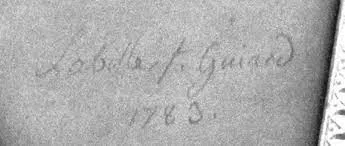 Labille f. Guiard
1783.